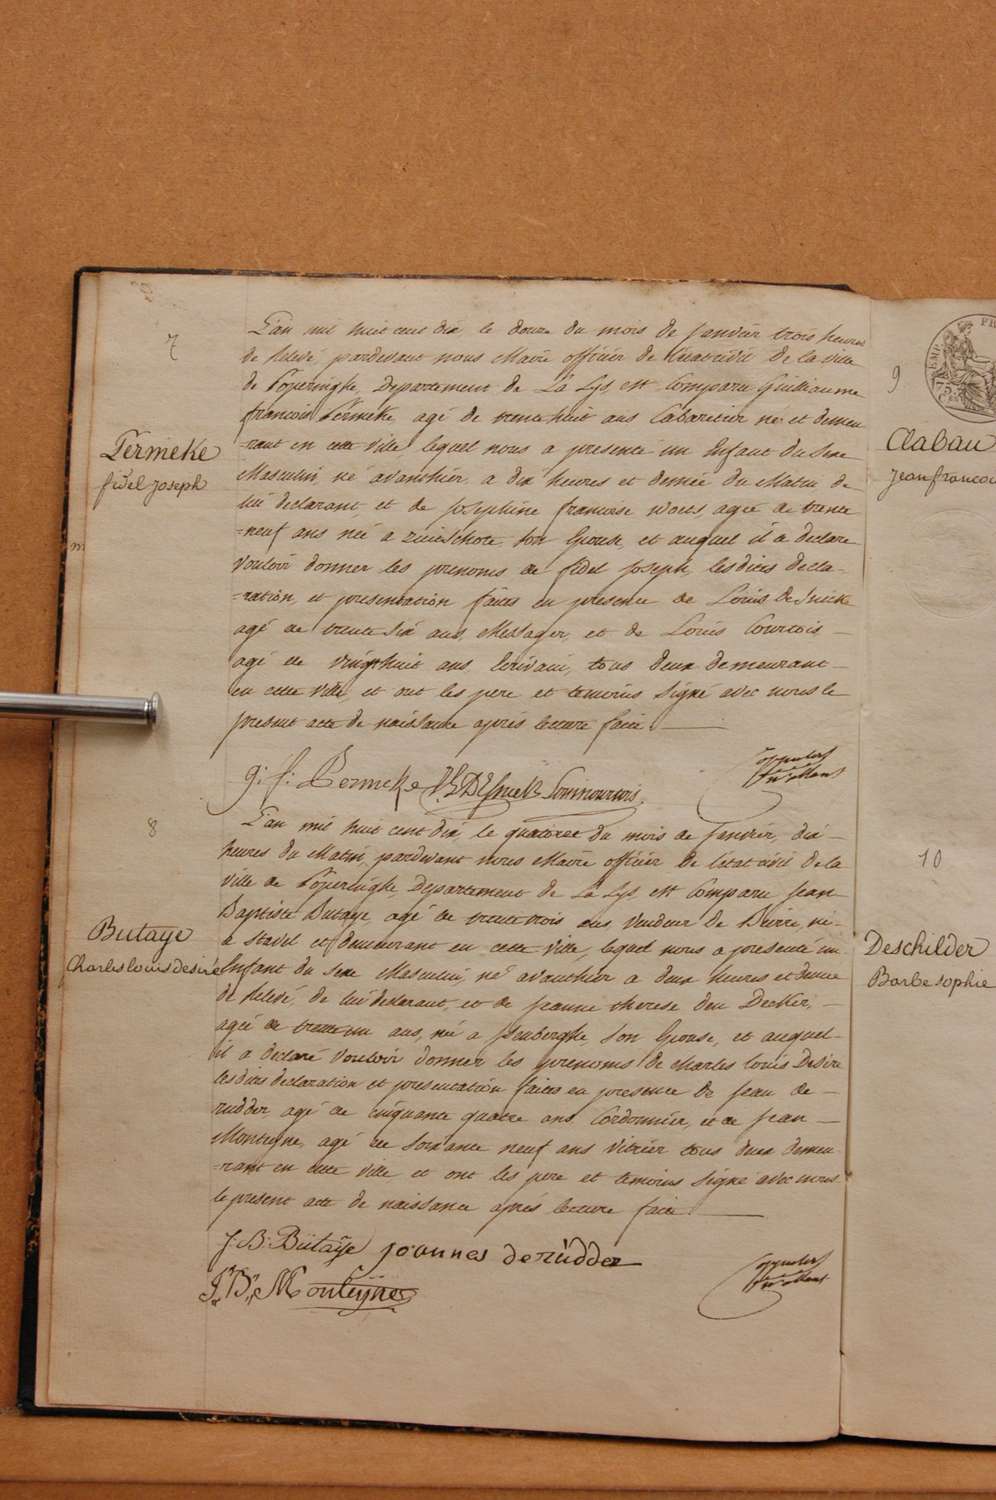 7
L'an mil huit cent dix le douze du mois de Janvier trois heures
de Relevé, pardevant nous Maire officier de l'état civil de la ville
de Poperinghe, Departement de La Lys, est Comparu Guilliaume
francois Permeke, agé de trente huit ans Cabaretier né et demeu
=rant en cette ville, lequel nous a presenté un Enfant du Sexe
Masculin, né avanthier, a dix heures et demiée du Matin de
lui declarant et de Josephine francoise woets, agée de trente
=neuf ans née a zuitschote, son Epouse, et auquel il a declaré
vouloir donner les prenoms de fidel Joseph, lesdites decla-
=ration, et presentation faites en presence de Louis
agé de trente six ans Messager, et de Louis Courtois
agé de vingthuit ans, Ecrivain, tous deux demeurant
en cette ville, et ont les pere et temoins Signé avec nous le
present acte de naissance après lecture faite
Permeke
fidel Joseph
g: f: Permeke
8
L'an mil huit cent dix, le quatorze du mois de Janvier, dix
heures du Matin, pardevant nous Maire officier de l'état civil de la
ville de Poperinghe, Departement de La Lys est Comparu Jean
Baptiste Butaye, agé de trente trois ans, vendeur de Bierre, né
a Stavel et demeurant en cette ville, lequel nous a presenté un
Enfant du Sexe Masculin, né avanthier a deux heures et demie
de Relevé, de lui declarant, et de Jeanne therese den Decker,
agée de trente un ans, née a , son Epouse, et auquel
il a declaré vouloir donner les prenoms de Charles Louis Desiré
lesdites declaration et presentation faites en presence de Jean de
rudder agé de cinquante quatre ans Cordonnier, et de Jean
Monteyne, agé de soixante neuf ans vitrier tous deux demeu
=rant en cette ville et ont les pere et temoins signé avec nous
le present acte de naissance après lecture faite
Butaye
Charles louis desiré
J B: Butaÿe joannes de rüdder
J: B: Monteÿne
9
Clabau
Jean francoi
10
Deschilder
Barbe sophie